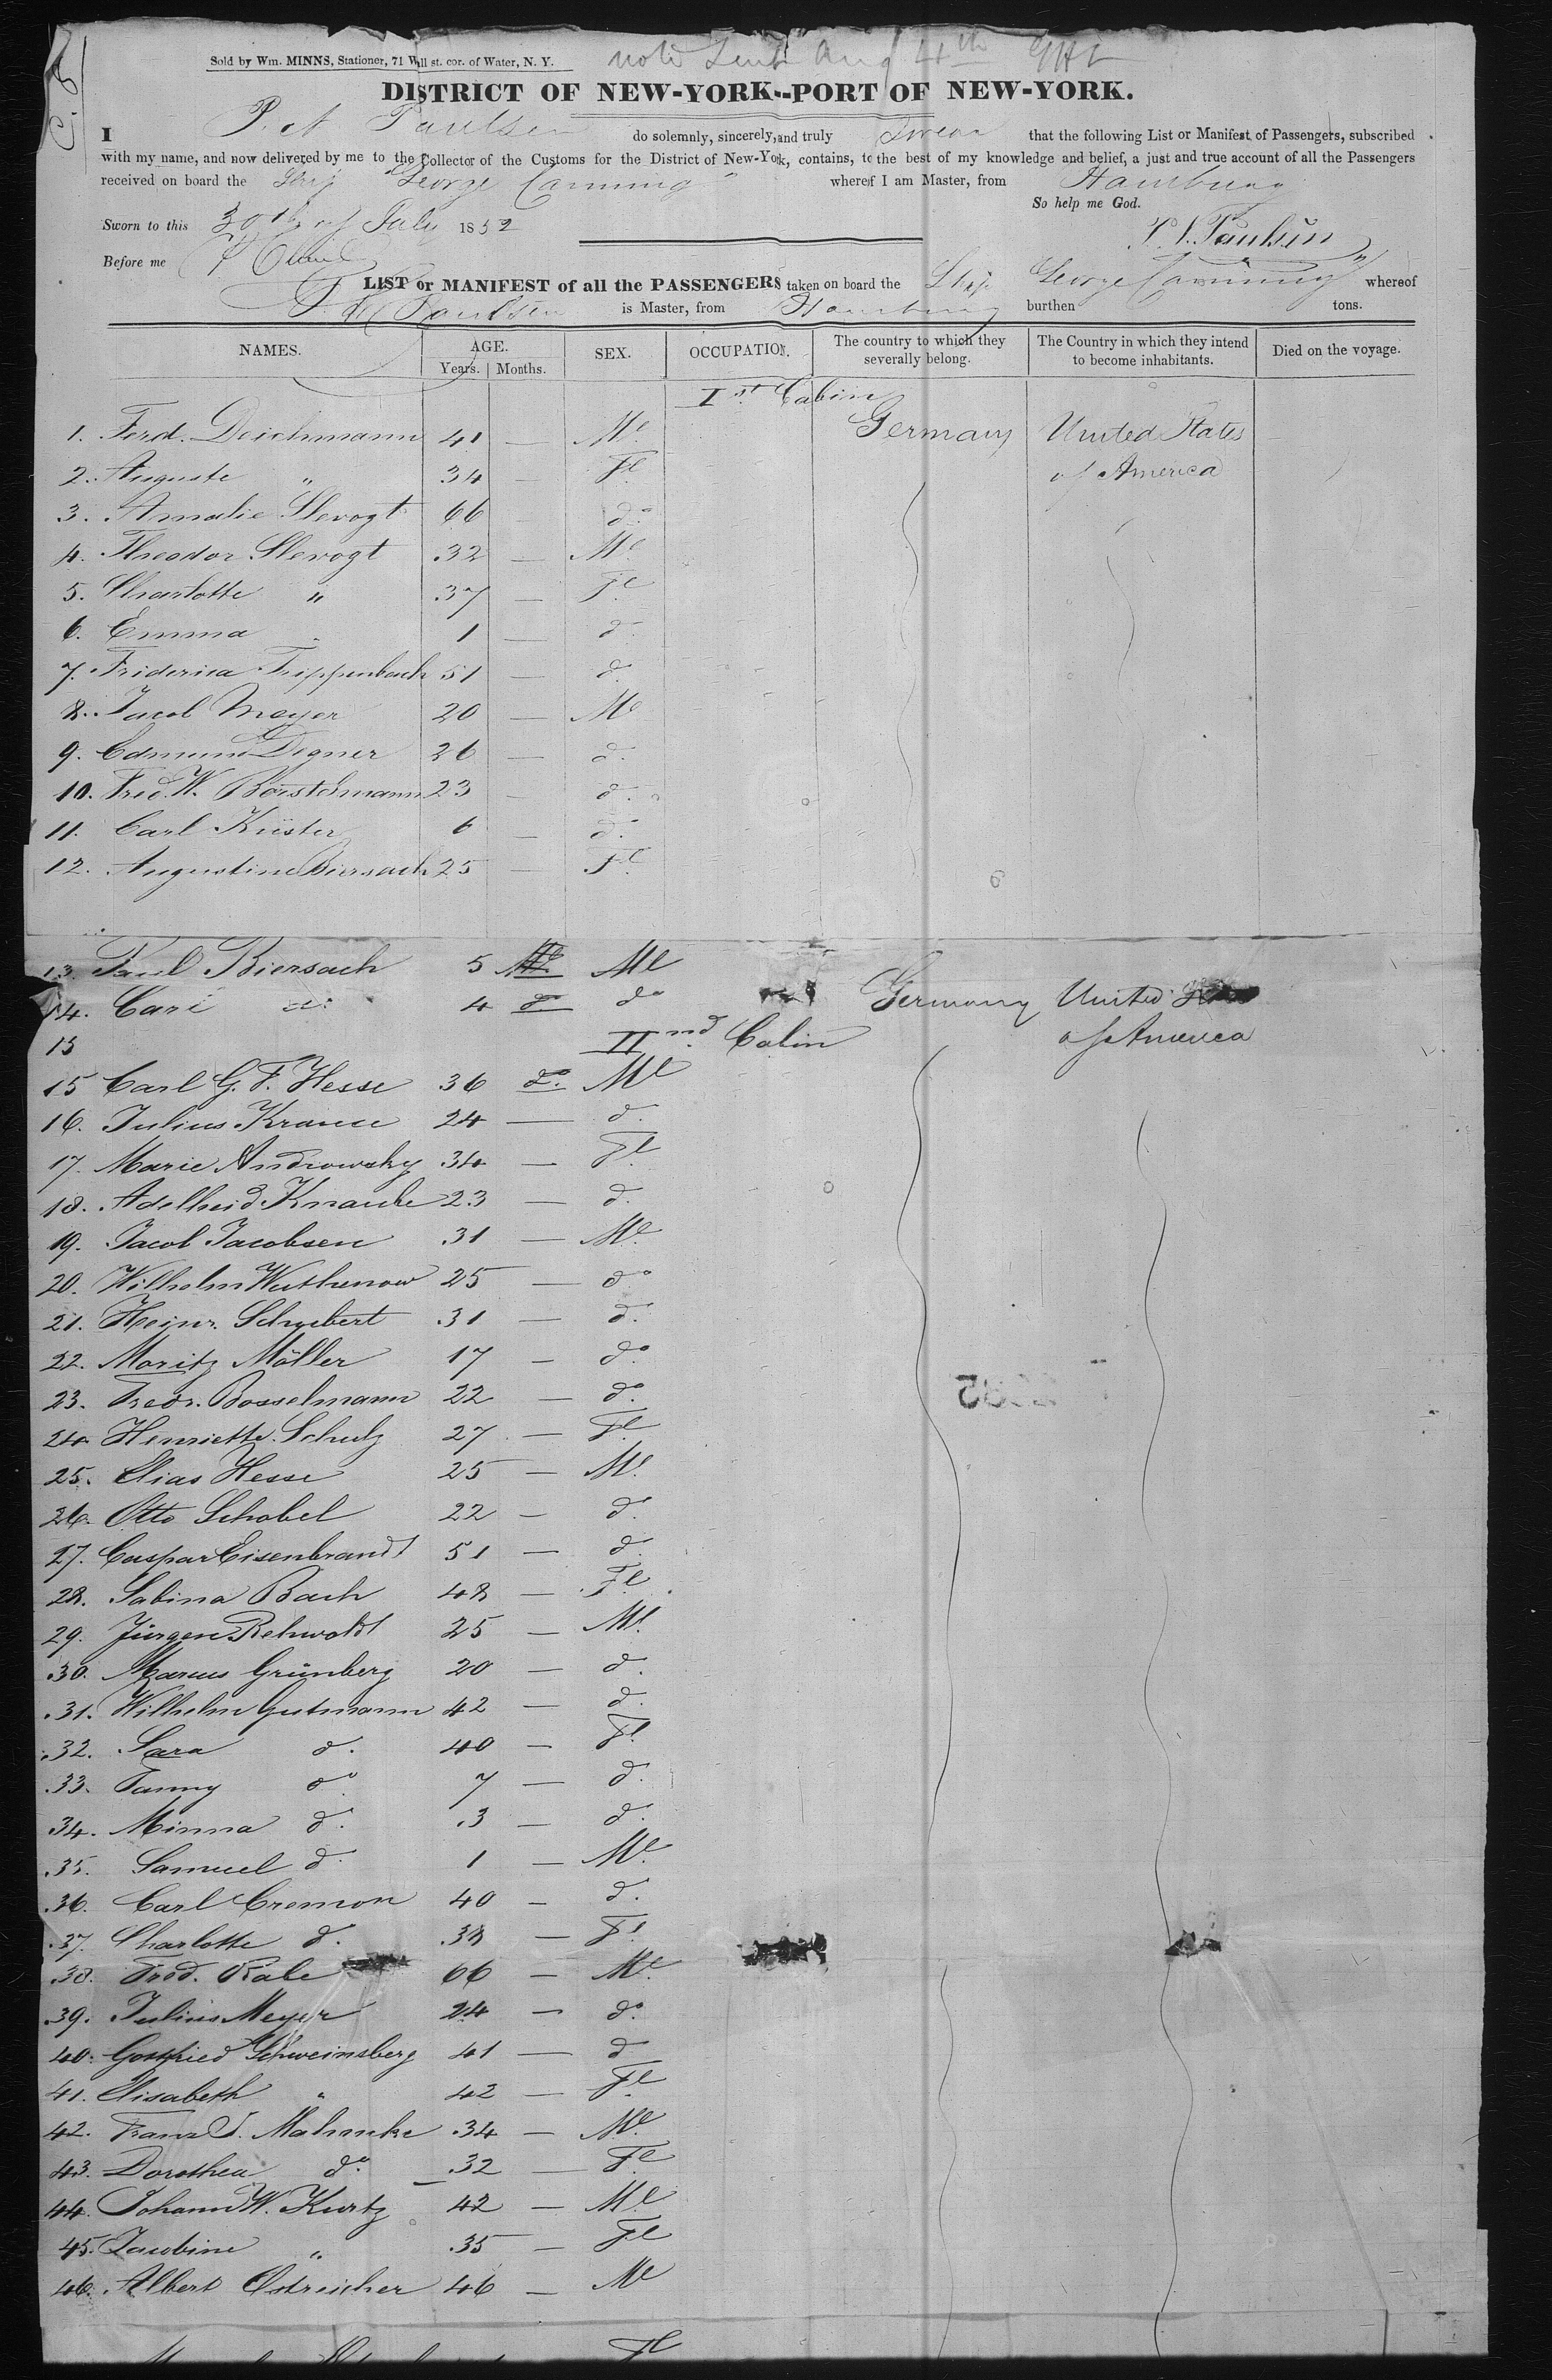 Sold by Wm. MINNS, Stationer, 71 Wall st. cor. of Water, N. Y.
note Sent Aug 4th
DISTRICT OF NEW-YORK--PORT OF NEW-YORK.
I P. N. Paulsen do solemnly, sincerely, and truly Swear that the following List or Manifest of Passengers, subscribed
with my name, and now delivered by me to the Collector of the Customs for the District of New-York, contains, to the best of my knowledge and belief, a just and true account of all the Passengers
received on board the Ship "George Canning" whereof I am Master, from Hamburg
So help me God.
Sworn to this 30th of July 1852
P. N. Paulsen
Before me
LIST or MANIFEST of all the PASSENGERS taken on board the Ship "George Canning" whereof
Paulsen is Master, from Hamburg burthen tons.
NAMES. AGE. Years. Months. SEX. OCCUPATION. The country to which they severally belong. The Country in which they intend to become inhabitants. Died on the voyage.
Ist Cabin
1. Ferd. Deichmann 41 — Ml. Germany United States
2. Auguste " 34 — Fl. of America
3. Amalie Slevogt 66 do
4. Theodor Slevogt 32 — Ml.
5. Charlotte " 37 — Fl.
6. Emma 1 — d.
7. Friderica Trippenbach 51 — d.
8. Jacob Meyer 20 — Ml
9. Edmund Degner 26 — d.
10. Fred. W. Borstelmann 23 — d.
11. Carl Küster 6 — d.
12. Augustine Biersach 25 — Fl.
13. Paul Biersach 5 Ml
14. Carl do 4 do do Germany United
15 IInd Cabin of America
15 Carl G. F. Hesse 36 do. Ml
16. Julius Krause 24 — d.
17. Marie Androwsky 34 — Fl.
18. Adelheid Knauke 23 — d.
19. Jacob Jacobsen 31 — Ml.
20. Wilhelm Wuthenow 25 — do
21. Heinr. Schubert 31 — d.
22. Moritz Möller 17 — do
23. Fredr. Bosselmann 22 — do.
24. Henriette Schulz 27 — Fl.
25. Elias Hesse 25 — Ml.
26. Otto Schobel 22 — d.
27. Caspar Eisenbrandt 51 — d.
28. Sabina Bach 48 — Fl.
29. Jürgen Rehwoldt 25 — Ml.
30. Marcus Grünberg 20 — d.
31. Wilhelm Gutmann 42 — d.
32. Sara d. 40 — Fl.
33. Fanny do 7 — d.
34. Minna d. 3 — d.
35. Samuel d. 1 — Ml.
36. Carl Cremon 40 — d.
37. Charlotte d. 38 — Fl.
38. Fred. Rabe 66 — Ml.
39. Julius Meyer 24 — do.
40. Gottfried Schweinsberg 41 — d
41. Elisabeth " 42 — Fl.
42. Franz J. Mahncke 34 — Ml.
43. Dorothea do 32 — Fl.
44. Johann W. Kurtz 42 — Ml
45. Jacobine " 35 — Fl
46. Albert Ostreicher 46 — Ml
Fl